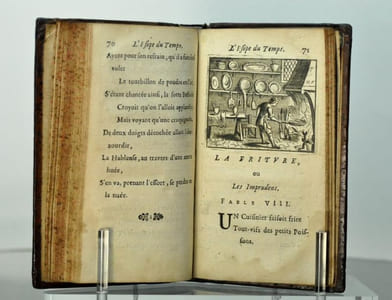 70 L'Esope du Temps.
Ayant pour son refrain, qu'il a fait
voler
Le tourbillon de poudre en l'air
S'étant chancée ainsi, la sotte
Croyoit qu'on l'alloit
Mais voyant qu'une
De deux doigts décochée alloit
lourdir,
La Hableuse, au travers d'une
huée,
S'en va, prenant l'essort, se perdre
la nuée.
L'Esope du Temps. 71
LA FRITURE,
ou
Les Imprudens.
FABLE VIII.
UN Cuisinier faisoit frire
Tout-vifs des petits Pois-
sons.